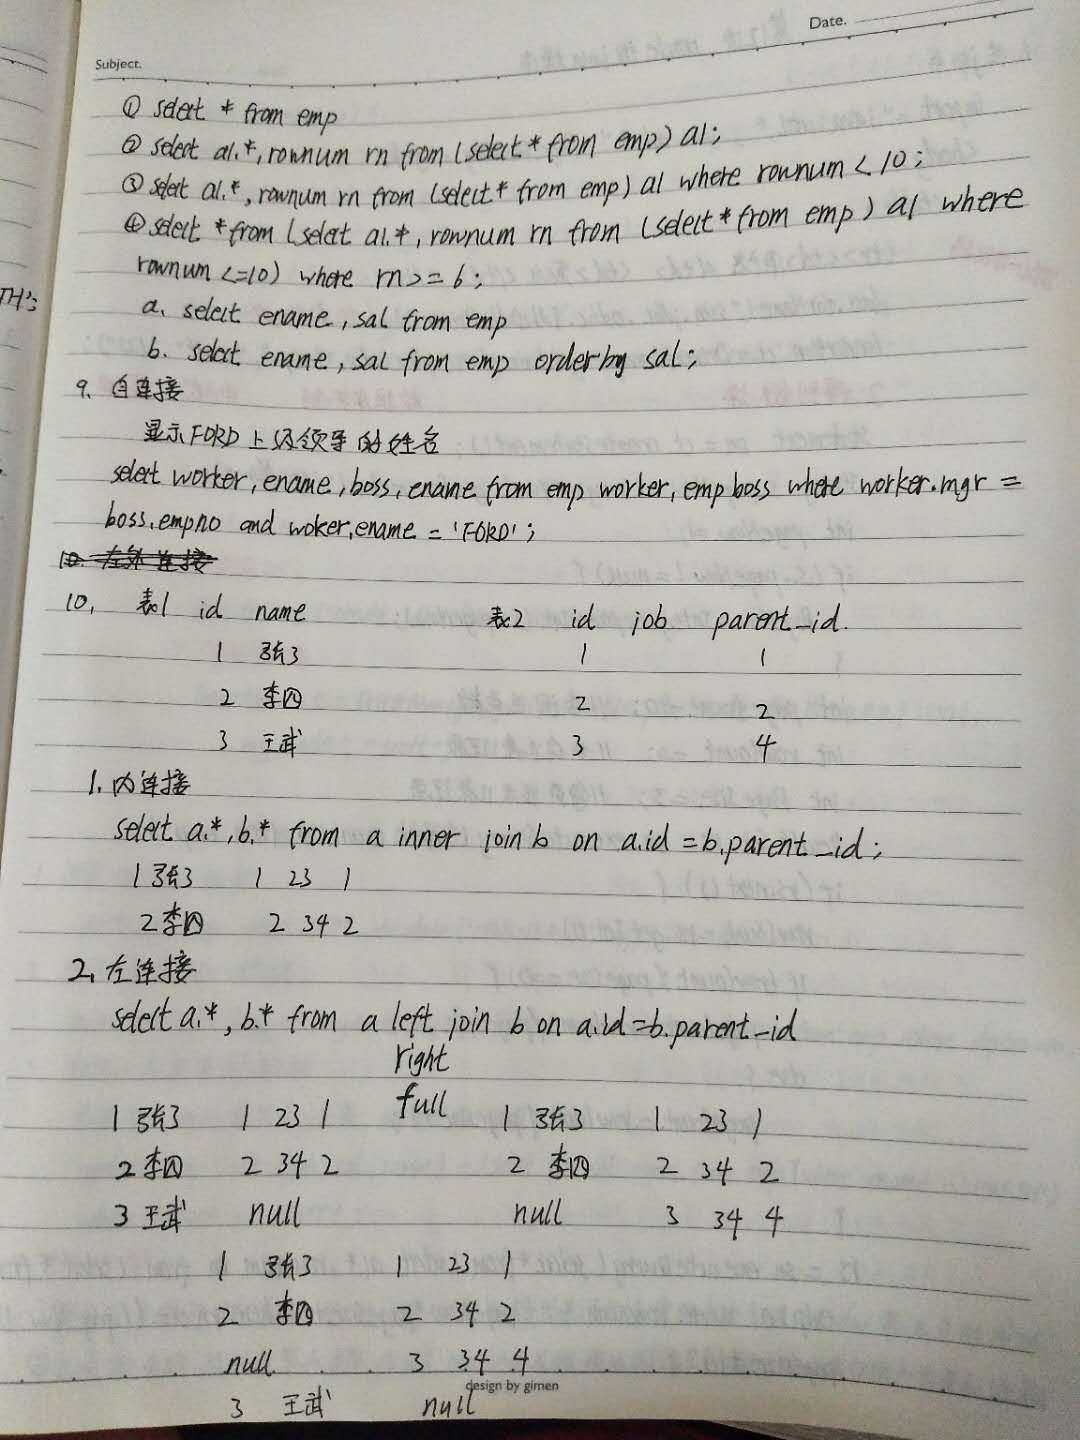 Date.
Subject.
① select * from emp
② select a1.*, rownum rn from (select * from emp) a1;
③ select a1.*, rownum rn from (select * from emp) a1 where rownum < 10;
④ select * from (select a1.*, rownum rn from (select * from emp) a1 where
rownum <=10) where rn >= 6;
TH's
a. select ename, sal from emp
b. select ename, sal from emp order by sal;
9. 自连接
显示FORD上级领导的姓名
select worker, ename, boss, ename from emp worker, emp boss where worker.mgr =
boss, empno and woker, ename = 'FORD';
10. 左外连接
10. 表1 id name 表2 id job parent_id.
1 张3 1 1
2 李四 2 2
3 王武 3 4
1. 内连接
select a.*, b.* from a inner join b on a.id = b.parent_id;
1 张3 1 23 1
2 李四 2 34 2
2. 左连接
select a.*, b.* from a left join b on a.id=b.parent_id
right
full
1 张3 1 23 1 1 张3 1 23 1
2 李四 2 34 2 2 李四 2 34 2
3 王武 null null 3 34 4
1 张3 1 23 1
2 李四 2 34 2
null 3 34 4
design by gimen
3 王武 null